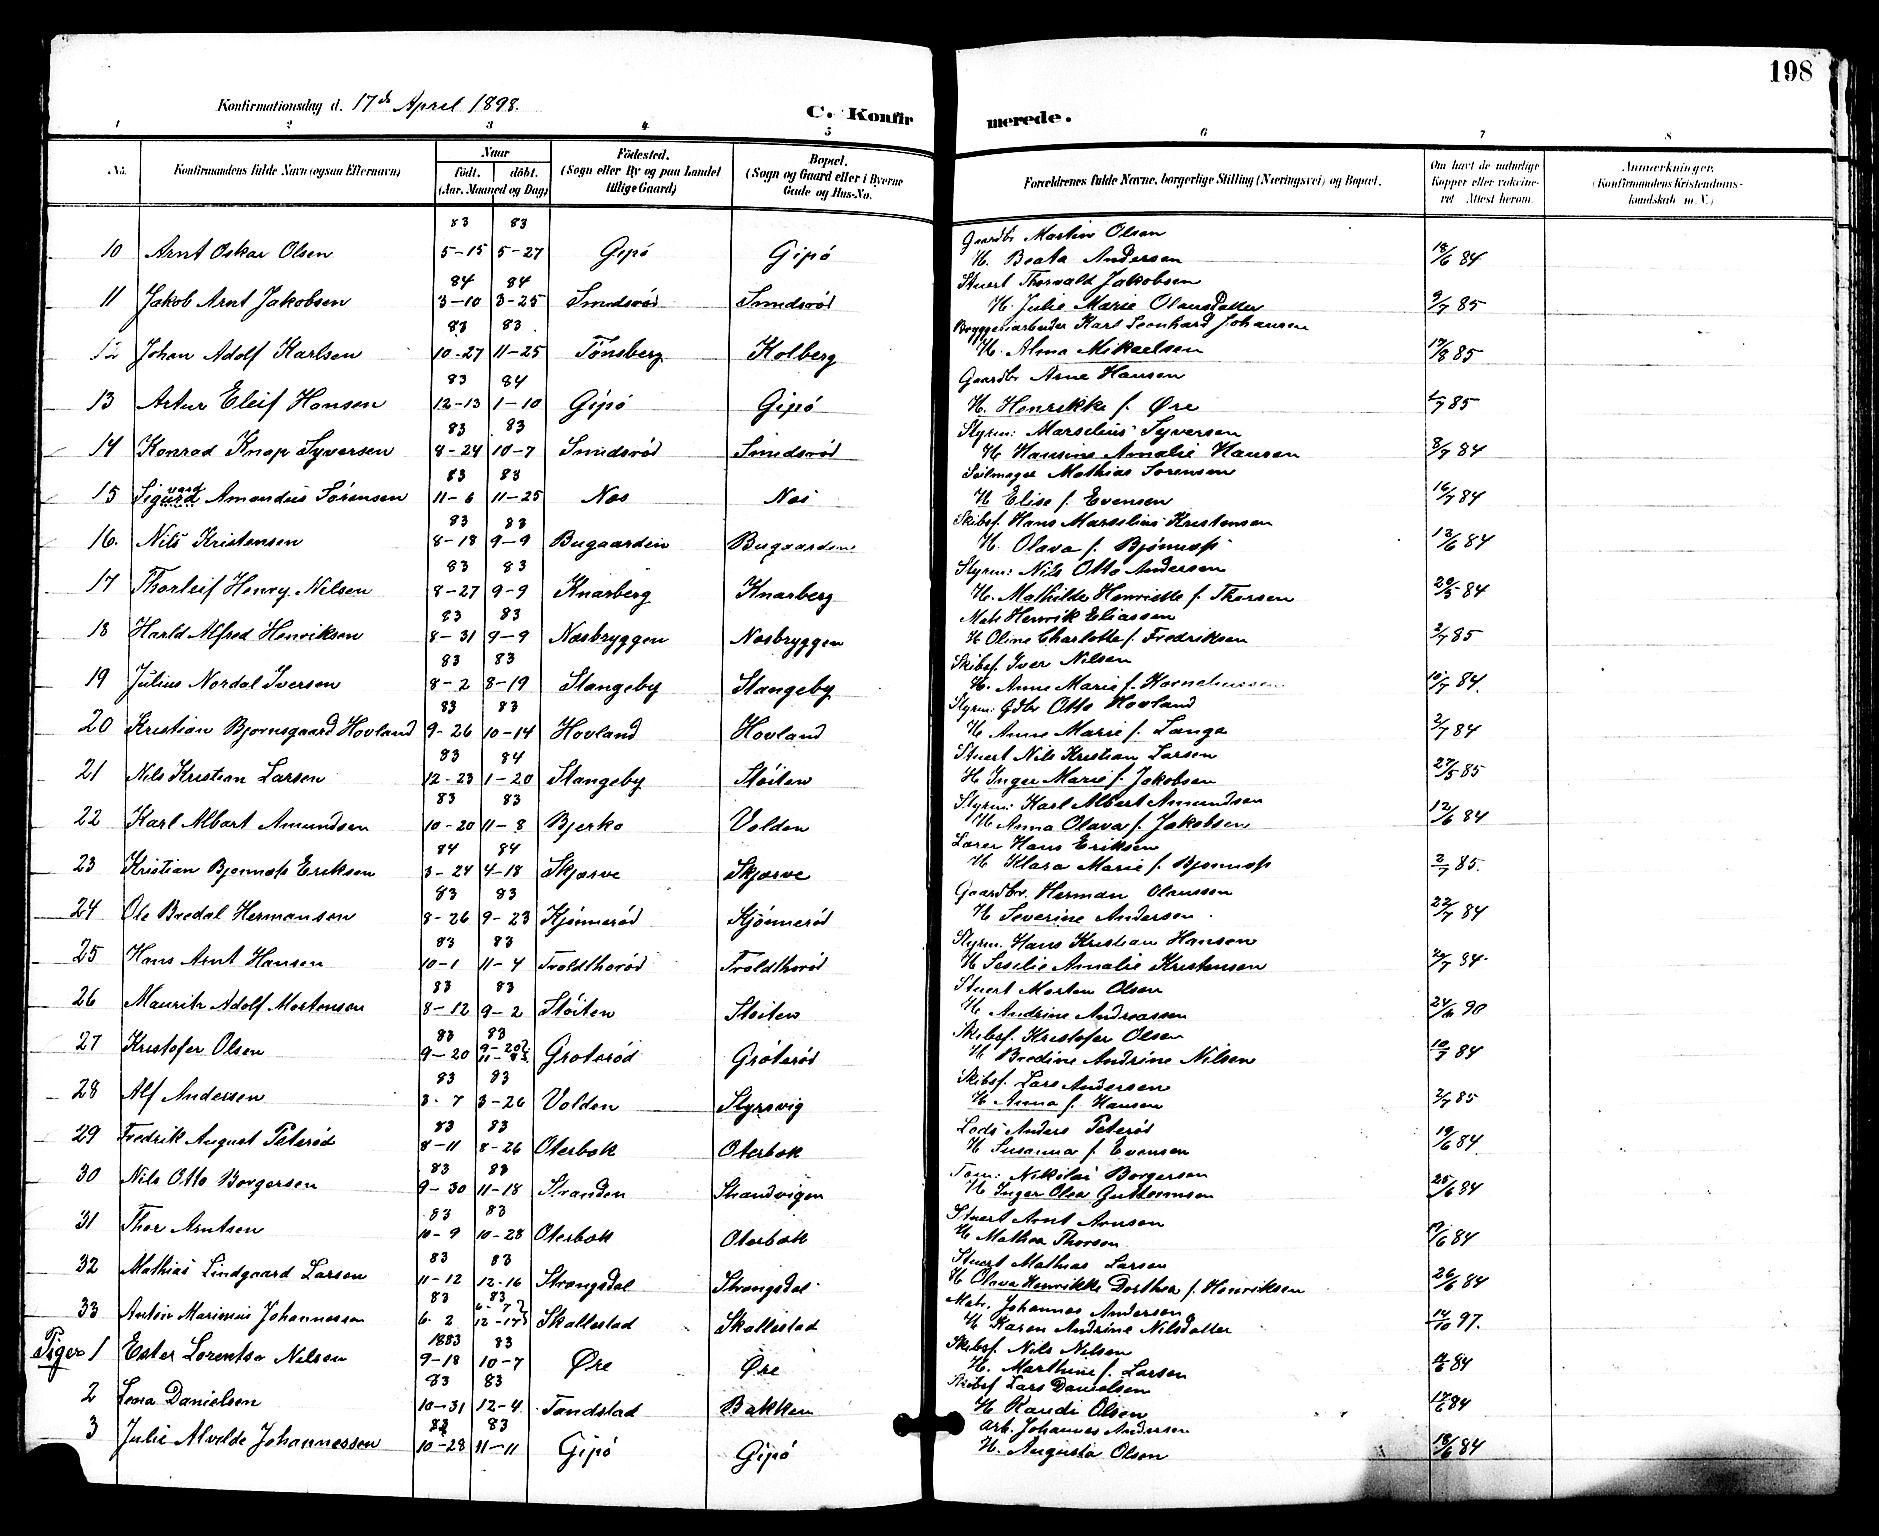 198
Konfirmationsdag d. 17de April 1898.
C. Konfirmerede.
1 2 3 4 5 6 7 8
No. Konfirmandens fulde Navn (ogsaa Efternavn) Naar født. døbt. (Aar, Maaned og Dag) Fødested. (Sogn eller By og paa Landet tillige Gaard) Bopæl. (Sogn og Gaard eller i Byerne Gade og Hus-No. Forældrenes fulde Navne, borgerlige Stilling (Næringsvei) og Bopæl. Om havt de naturlige Kopper eller vakcineret. Attest herom. Anmærkninger. (Konfirmandens Kristendomskundskab m. V.)
83 83 Gaardbr Martin Olsen
10 Arnt Oskar Olsen 5-15 5-27 Gipö Gipö H. Beata Andersen 18/6 84
84 84 Stuert Thorvald Jakobsen
11 Jakob Arnt Jakobsen 3-10 3-25 Smidsröd Smidsröd H. Julie Marie Olausdatter 9/7 85
83 83 Bryggeriarbeider Karl Leonhard Johansen
12 Johan Adolf Karlsen 10-27 11-25 Tönsberg Kolberg H. Alma Mikaelsen 85
83 84 Gaardbr Arne Hansen
13 Artur Eleif Hansen 12-13 1-10 Gipö Gipö H. Henrikke f. Øre 85
83 83 Styrm: Marselius Syversen
14 Konrad Knap Syversen 8-24 10-7 Smidsröd Smidsröd H Hansine Amalie Hansen 8/7 84
83 83 Seilmager Mathias Sørensen
15 Sigurd Amandus Sørensen 11-6 11-25 Nes Nes H Elise f. Evensen 16/7 84
83 83 Skibsf. Hans Marselius Kristensen
16. Nils Kristensen 8-18 9-9 Bugaarden Bugaarden H. Olava f. Bjønnæs 13/6 84
83 83 Styrm: Nils Otto Andersen
17 Thorleif Henry Nilsen 8-27 9-9 Knarberg Knarberg H. Mathilde Henriette f. Thorsen 29/5 84
83 83 Mats Henrik Eliassen
18 Harld Alfred Henriksen 8-31 9-9 Næsbryggen Næsbryggen H Oline Charlotte f. Fredriksen 2/7 85
83 83 Skibsf. Iver Nilsen
19 Julius Nordal Iversen 8-2 8-19 Stangeby Stangeby H. Anne Marie f. Korneliussen 10/7 84.
83 83 Styrm: Gdbr Otto Hovland
20 Kristian Bjørnsgaard Hovland 9-26 10-14 Hovland Hovland H Anne Marie f. Lange 2/7 84
83 84 Stuert Nils Kristian Larsen
21 Nils Kristian Larsen 12-23 1-20 Stangeby Støiten H Inger Marie f. Jakobsen 27/5 85
83 83 Styrm: Karl Albert Amundsen
22 Karl Albert Amundsen 10-20 11-8 Bjerkø Volden H Anna Olava f. Jakobsen 12/6 84
84 84 Lærer Hans Eriksen
23 Kristian Bjønnæs Eriksen 3-24 4-18 Skjærve Skjærve H Klara Marie f. Bjønnæs 2/7 85.
83 83 Gaardbr. Herman Olaussen
24 Ole Bredal Hermansen 8-26 9-23 Kjönneröd Kjönneröd H Severine Andersen. 22/7 84
83 83 Styrm. Hans Kristian Hansen
25 Hans Arnt Hansen 10-1 11-4 Troldtheröd Troldtheröd H Sesilie Amalie Kristensen 84
83 83 Stuert Morten Olsen
26 Mauritz Adolf Mortensen 8-12 9-2 Støiten Støiten H Andrine Andreassen 90
83 83 Skibsf. Kristofer Olsen
27 Kristofer Olsen 9-20 9-20 11-8 Gröteröd Gröteröd H Bredine Andrine Nilsen 10/7 84
83 83 Skibsf. Lars Andersen
28 Alf Andersen 3-7 3-26 Volden Styrsvig H Anna f. Hansen 2/7 85
83 83 Lods Anders Peteröd
29 Fredrik August Peteröd 8-11 8-26 Oterbæk Oterbæk H Susanna f. Evensen 19/6 84.
83 83 Nikolai Borgersen
30 Nils Otto Borgersen 9-30 11-18 Stranden Strandvigen H Inger Olea Guttormsen 25/6 84
83 83 Stuert Arnt Arnsen
31 Thor Arntsen 10-9 10-28 Oterbæk Oterbæk H Mathea Thorsen 84
83 83 Stuert Mathias Larsen
32 Mathias Lindgaard Larsen 11-12 12-16 Strengsdal Strengsdal H Olava Henrikke Dorthea f. Henriksen 26/6 84
83 83 Matr. Johannes Andersen
33 Anton Marinius Johannessen 6-2 12-17 Skallestad Skallestad H Karen Andrine Nilsdatter 14/10 97.
1883 83 Skibsf. Nils Nilsen
Piger 1 Ester Lorentse Nilsen 9-18 10-7 Øre Øre H. Marthine f. Larsen 84
83 83 Skibsf Lars Danielsen
2 Lena Danielsen 10-31 12-4 Tandstad Bakken H Randi Olsen 84
83 83 Arb. Johannes Andersen
3 Julie Alvilde Johannessen 10-28 11-11 Gipö Gipö H. Augusta Olsen 18/6 84